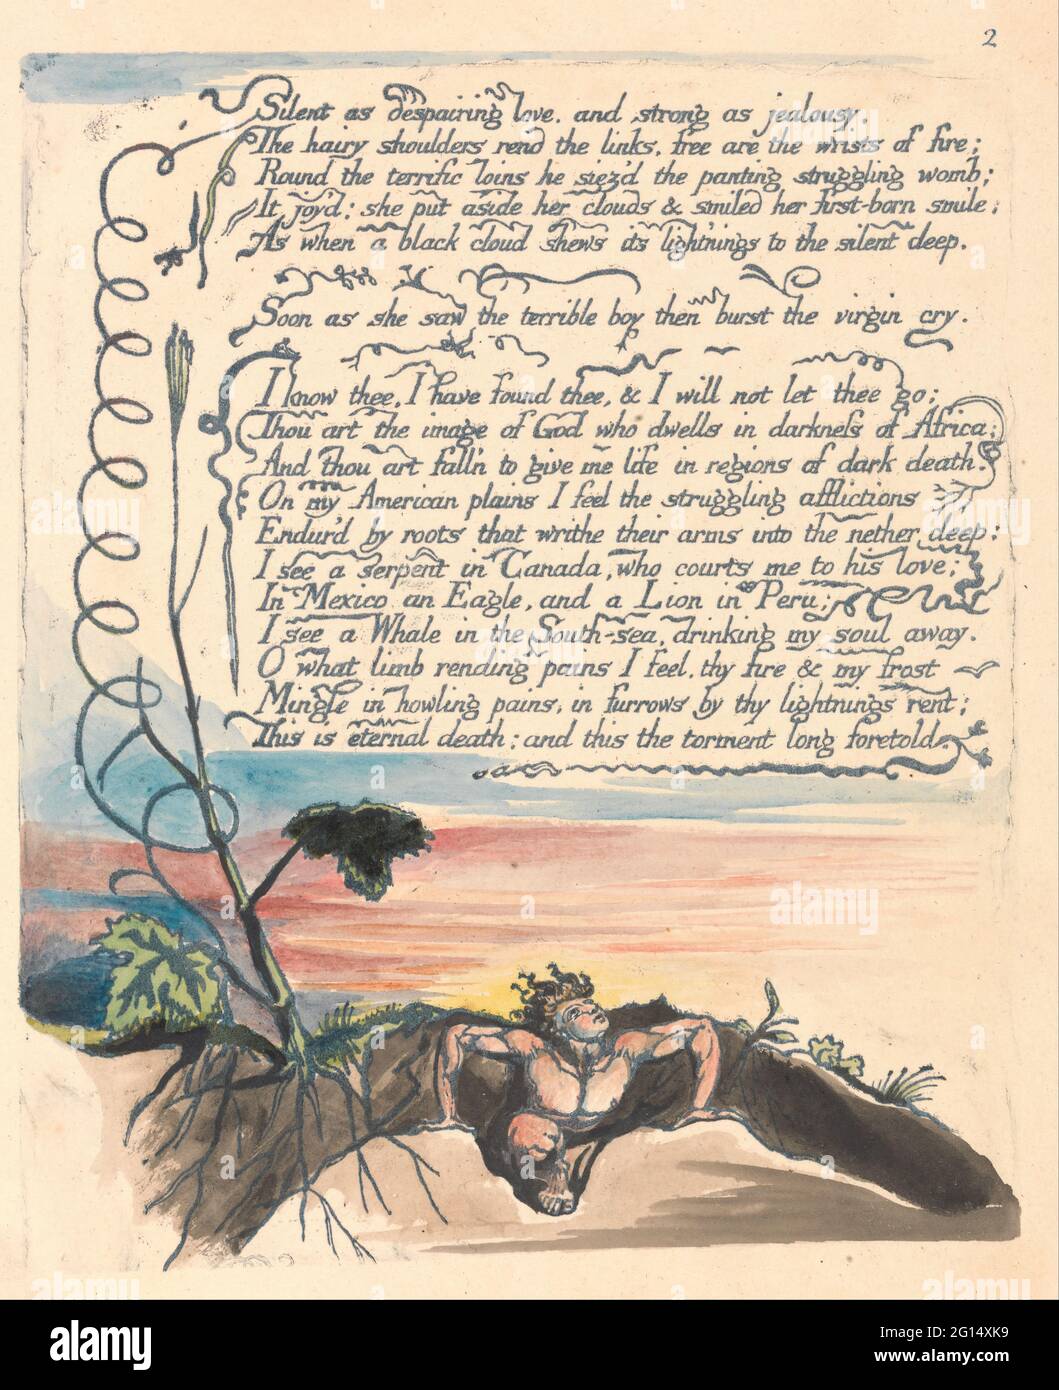 2
Silent as despairing love, and strong as jealousy.
The hairy shoulders rend the links, free are the wrists of fire;
Round the terrific loins he siez'd the panting struggling womb;
It joy'd: she put aside her clouds & smiled her first-born smile;
As when a black cloud shews its light'nings to the silent deep.
Soon as she saw the terrible boy then burst the virgin cry.
I know thee, I have found thee, & I will not let thee go;
Thou art the image of God who dwells in darkneſs of Africa;
And thou art fall'n to give me life in regions of dark death.
On my American plains I feel the struggling afflictions
Endur'd by roots that writhe their arms into the nether deep:
I see a serpent in Canada, who courts me to his love;
In Mexico an Eagle, and a Lion in Peru;
I see a Whale in the South-sea, drinking my soul away.
O what limb rending pains I feel, thy fire & my frost
Mingle in howling pains, in furrows by thy lightnings rent;
This is eternal death; and this the torment long foretold.
alamy
alamy
Image ID: 2G14XK9
www.alamy.com